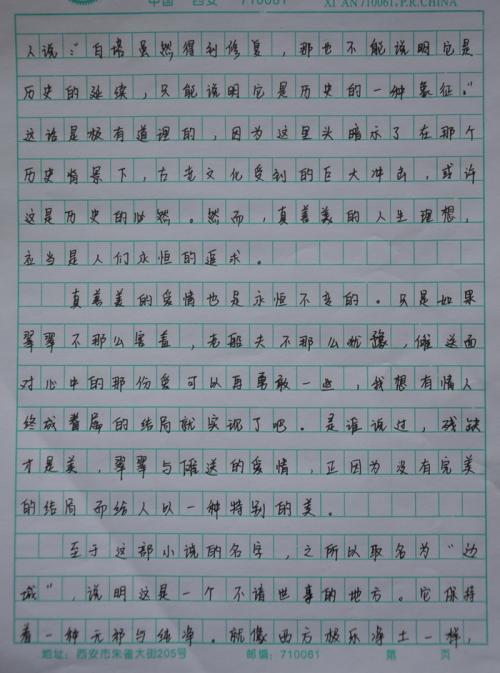 中国 西安 710061 XI'AN 710061, P.R.CHINA
人说：“白塔虽然得到修复，那也不能说明它是
历史的延续，只能说明它是历史的一种象征。”
这话是极有道理的，因为这里头暗示了在那个
历史情景下，古老文化受到的巨大冲击，或许
这是历史的必然。然而，真善美的人生理想，
应当是人们永恒的追求。
真善美的爱情也是永恒不变的。只是如果
翠翠不那么害羞，老船夫不那么犹豫，傩送面
对心中的那份爱可以再勇敢一些，我想有情人
终成眷属的结局就实现了吧。是谁说过，残缺
才是美，翠翠与傩送的爱情，正因为没有完美
的结局而给人以一种特别的美。
至于这部小说的名字，之所以取名为“边
城”，说明这是一个不谙世事的地方。它保持
着一种无邪与纯净。就像西方极乐净土一样，
地址：西安市朱雀大街205号 邮编：710061 第 页